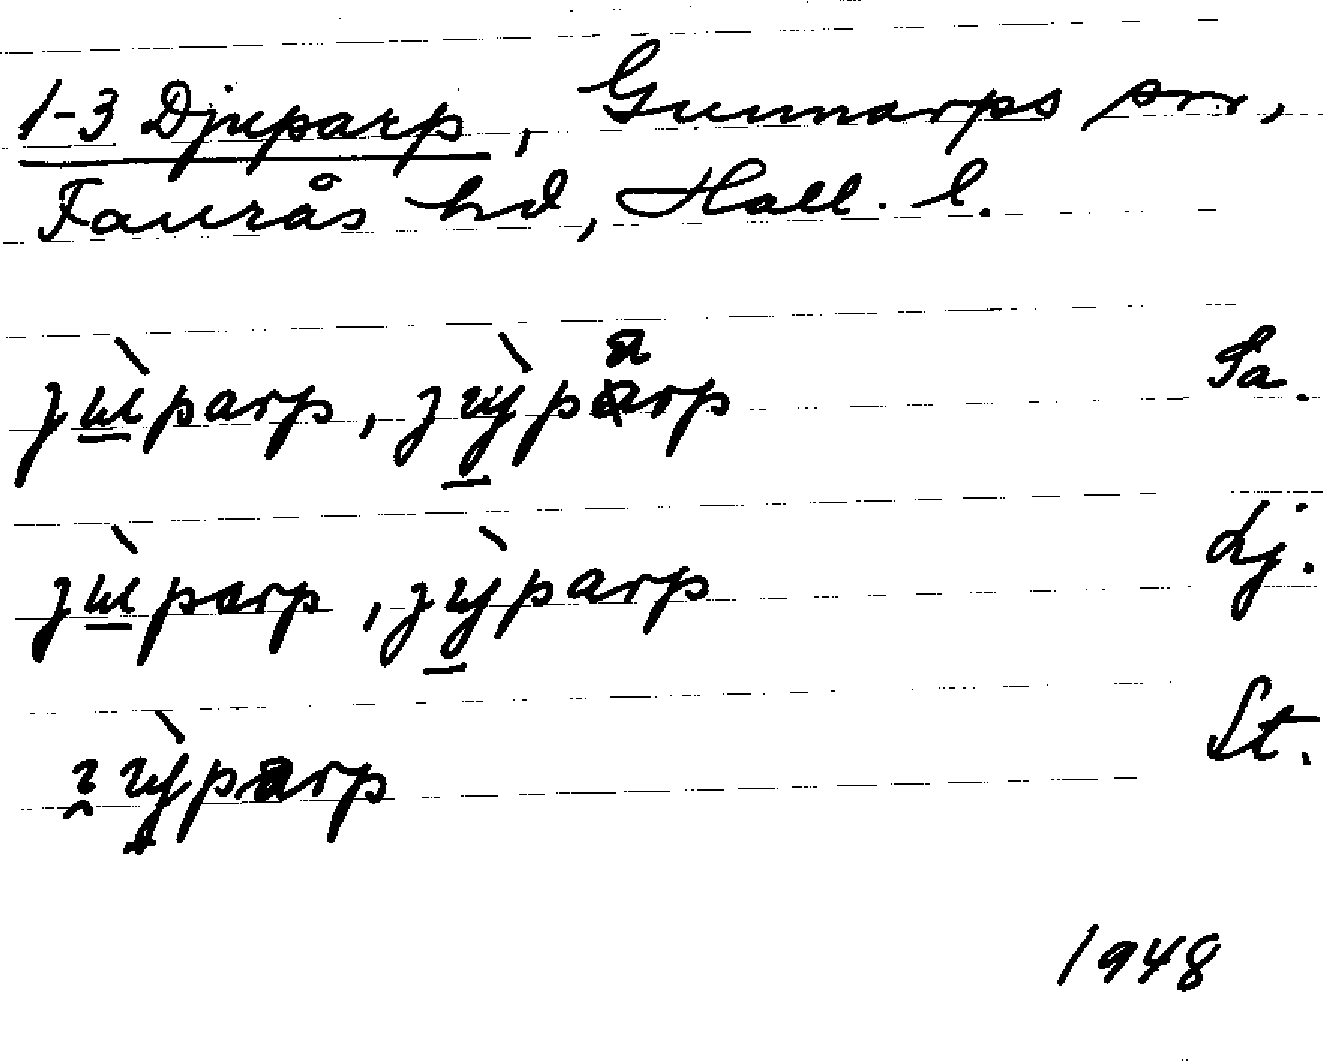 1-3 Djuparp, Gunnarps sn,
Faurås hd, Hall. l.
jùparp, jỳparp Sa.
jùparp, jỳparp Lj.
jỳparp St.
1948